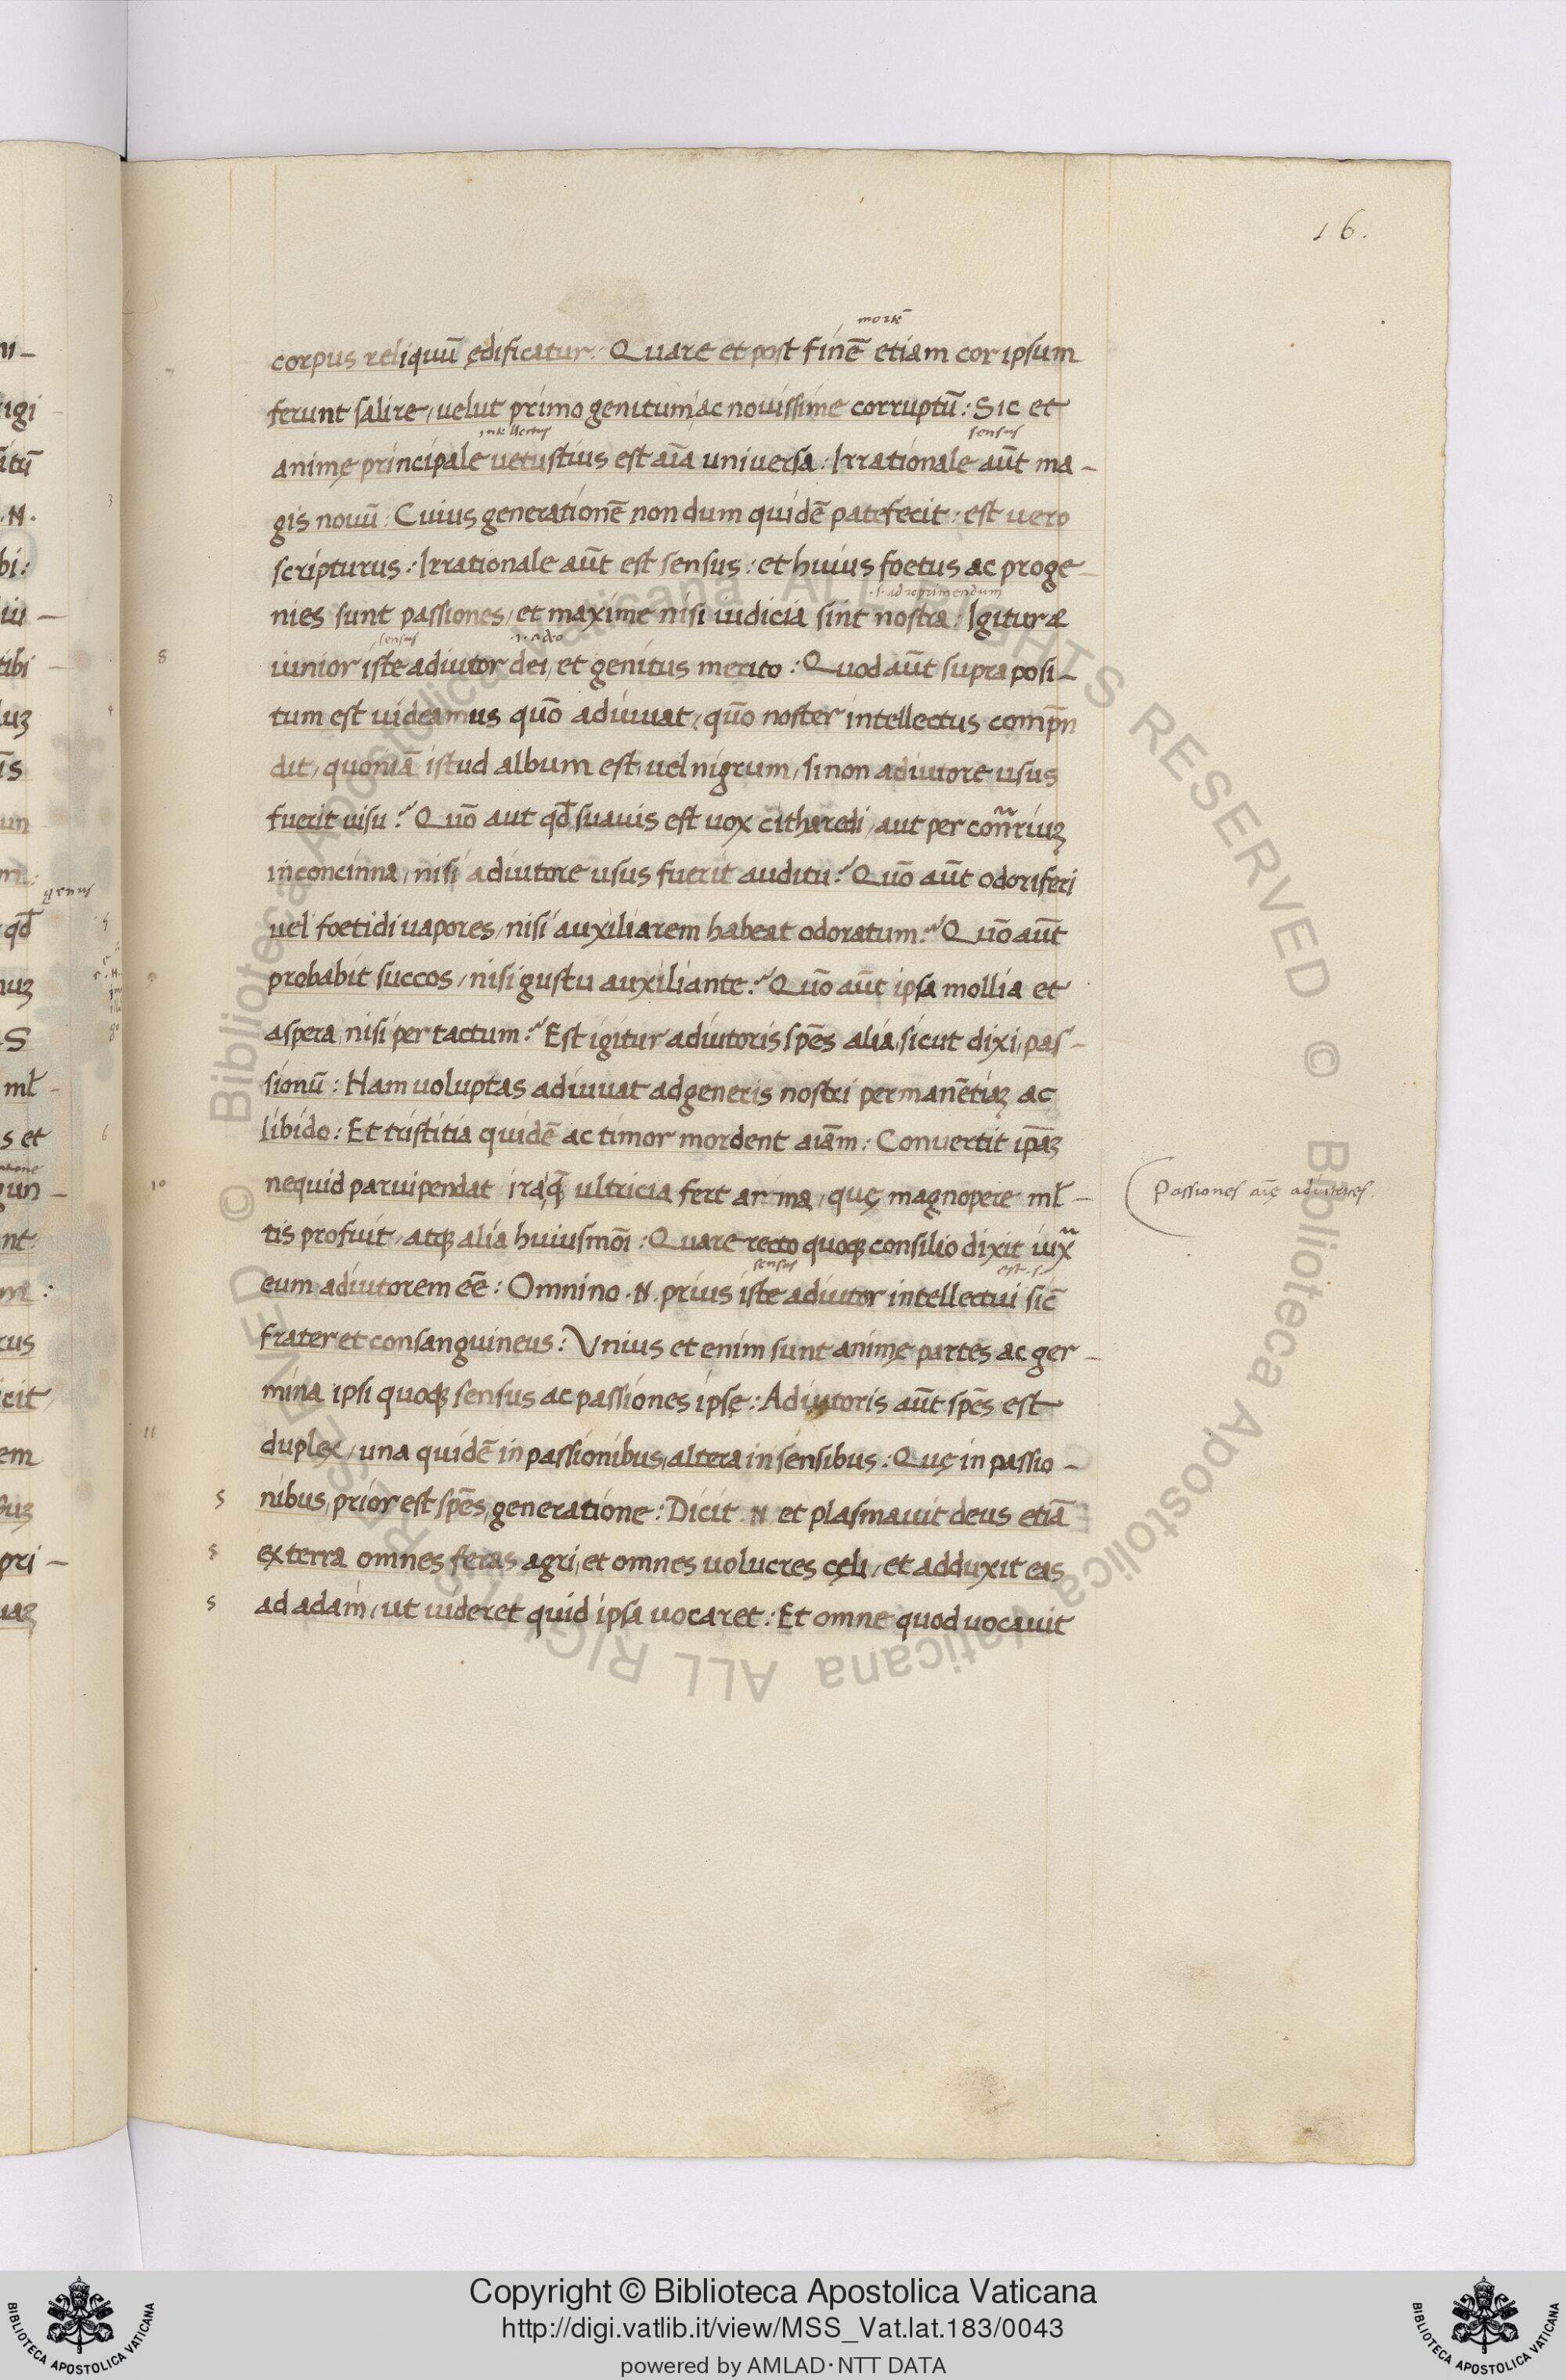 16.
mortē
corpus reliquū ędificatur: Quare et post finē etiam cor ipsum
ferunt salire, uelut primo genitum, ac nouissime corruptū: Sic et
intellectus sensus
animę principale uetustius est aīa uniuersa: Irrationale aūt ma-
gis nouū: Cuius generationē non dum quidē patefecit: est uero
scripturus: Irrationale aūt est sensus: et huius foetus ac proge-
.s. ad reprimendum
nies sunt passiones, et maxime nisi iudicia sint nostra: Igitur &
sensus .i. a deo
8 iunior iste adiutor dei, et genitus merito: Quod aūt supra posi-
tum est uideamus quō adiuuat, quō noster intellectus comp̄n
dit, quoniā istud album est, uel nigrum, si non adiutore usus
fuerit uisu? Quō aut qđ suauis est uox citharedi, aut per conr̄riuꝫ
inconcinna, nisi adiutore usus fuerit auditu? Quō aūt odoriferi
uel foetidi uapores, nisi auxiliarem habeat odoratum? Quō aūt
9 probabit succos, nisi gustu auxiliante? Quō aūt ipsa mollia et
aspera, nisi per tactum? Est igitur adiutoris sp̄es alia, sicut dixi, pas-
sionū: Nam uoluptas adiuuat ad generis nostri permanētiaꝫ ac
libido: Et tristitia quidē ac timor mordent aīam: Conuertit ip̄aꝫ
10 nequid paruipendat iraq̨ ultricia fert arma, quę magnopere ml̄-
Passiones aīę adiutrices.
tis profuit, atq̨ alia huiusmōi: Quare recto quoq̨ consilio dixit iux̄
sensus est .s.
eum adiutorem eē: Omnino .N. prius iste adiutor intellectui sic̄
frater et consanguineus: Vnius et enim sunt animę partes ac ger-
mina ipsi quoq̨ sensus ac passiones ipsę: Adiutoris aūt sp̄es est
11 duplex, una quidē in passionibus, altera in sensibus: Quę in passio-
s nibus, prior est sp̄es, generatione: Dicit .N. et plasmauit deus etiā
s ex terra omnes feras agri, et omnes uolucres cęli, et adduxit eas
s ad adam, ut uideret quid ipsa uocaret: Et omne quod uocauit
Copyright © Biblioteca Apostolica Vaticana
http://digi.vatlib.it/view/MSS_Vat.lat.183/0043
powered by AMLAD·NTT DATA
BIBLIOTECA APOSTOLICA VATICANA
BIBLIOTECA APOSTOLICA VATICANA
© Biblioteca Apostolica Vaticana ALL RIGHTS RESERVED © Biblioteca Apostolica Vaticana ALL RIGHTS RESERVED